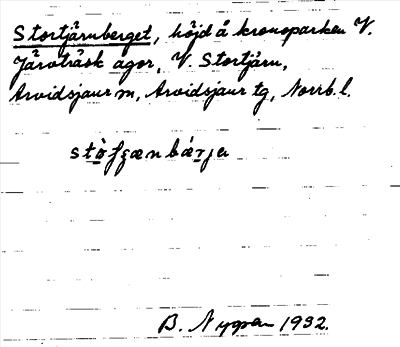 Stortjärnberget, höjd å kronoparken V.
Järvträsk ägor, V. Stortjärn,
Arvidsjaur sn, Arvidsjaur tg, Norrb. l.
B. Nygren 1932.